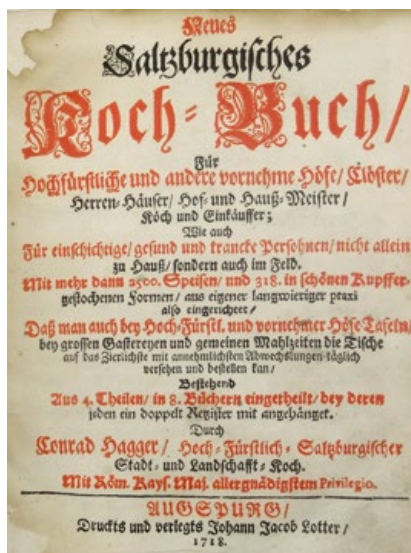 Neues
Saltzburgisches
Koch-Buch/
Für
Hochfürstliche und andere vornehme Höfe/ Clöster/
Herren-Häuser/ Hof- und Hauß-Meister/
Köch und Einkäuffer;
Wie auch
Für einschichtige/ gesund und krancke Persohnen/ nicht allein
zu Hauß/ sondern auch im Feld.
Mit mehr dann 2500. Speisen/ und 318. in schönen Kupffer-
gestochenen Formen/ aus eigener langwieriger praxi
also eingerichtet/
Daß man auch bey Hoch-Fürstl. und vornehmer Höfe Tafeln/
bey grossen Gastereyen und gemeinen Mahlzeiten die Tische
auf das Zierlichste mit annehmlichsten Abwechslungen täglich
versehen und bestellen kan/
Bestehend
Aus 4. Theilen/ in 8. Büchern eingetheilt/ bey deren
jeden ein doppelt Register mit angehänget.
Durch
Conrad Hagger/ Hoch-Fürstlich-Saltzburgischer
Stadt- und Landschafft-Koch.
Mit Röm. Kays. Maj. allergnädigstem Privilegio.
AUGSPURG/
Druckts und verlegts Johann Jacob Lotter/
1718.